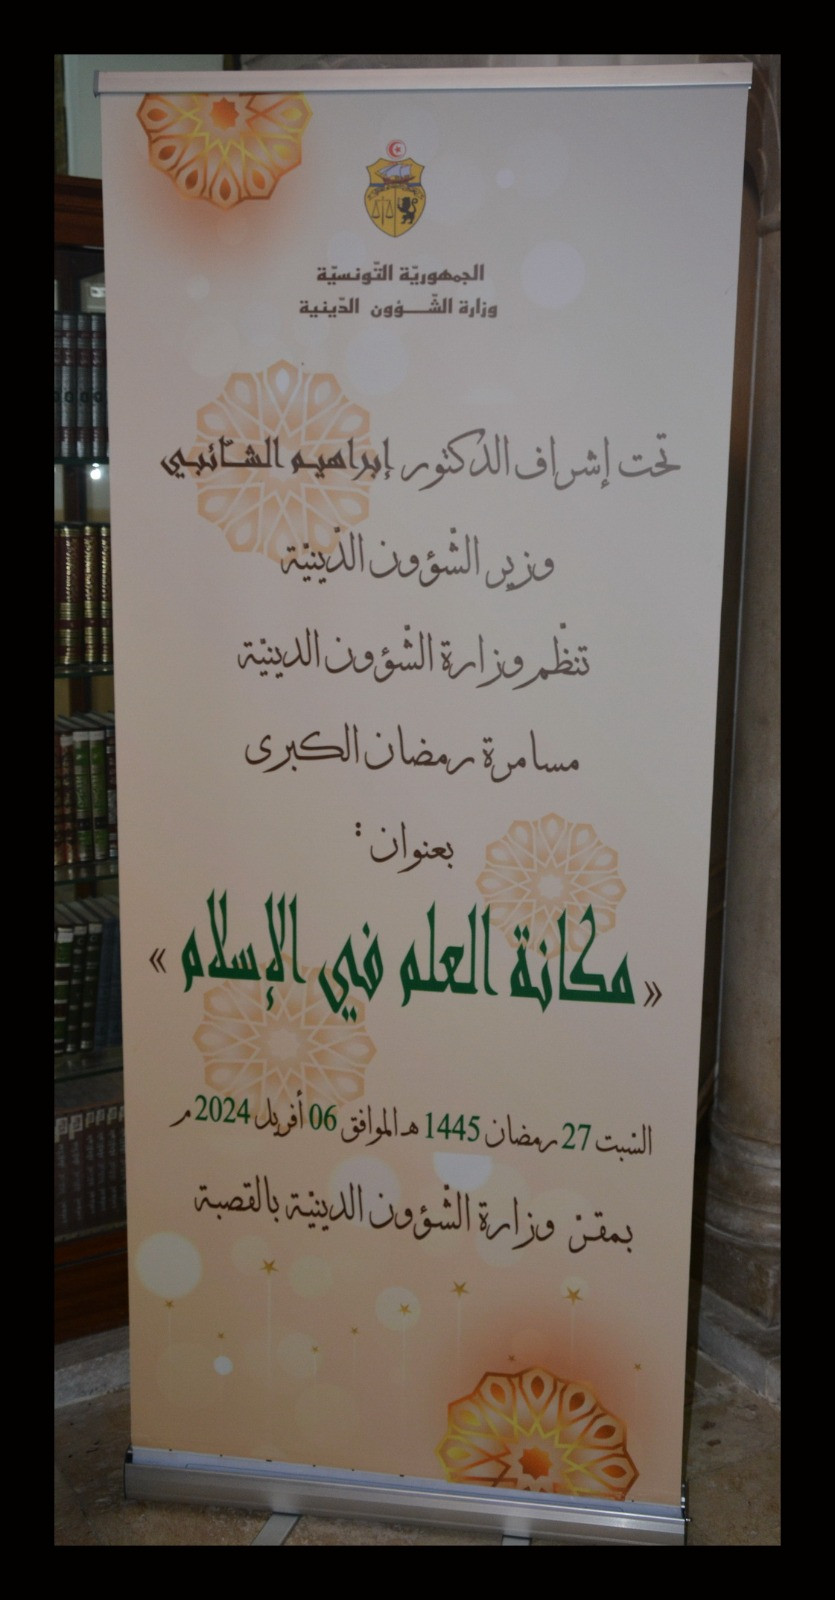 الجمهوريّة التّونسيّة
وزارة الشّــؤون الدّينية
تحت إشراف الدّكتور إبراهيم الشّائبي
وزير الشّؤون الدّينيّة
تنظّم وزارة الشّؤون الدينيّة
مسامرة رمضان الكبرى
بعنوان :
« مكانة العلم في الإسلام »
السّبت 27 رمضان 1445 هـ الموافق 06 أفريل 2024 م
بمقرّ وزارة الشّؤون الدينيّة بالقصبة